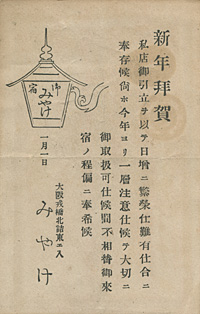 新年拜賀
私店御引立ヲ以テ日增ニ繁榮仕難有仕合ニ
奉存候尙ホ今年ヨリ一層注意仕候テ大切ニ
御取扱可仕候間不相替御來
宿ノ程偏ニ奉希候
一月一日
大阪戎橋北詰東ヘ入
みやけ
御宿
みやけ